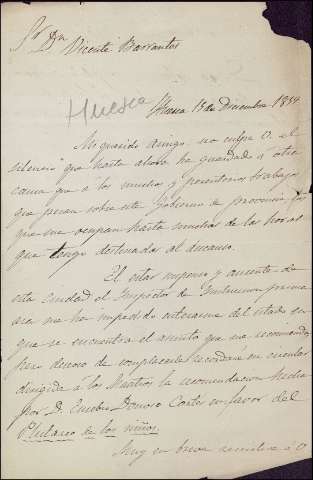 Sr. Dn. Vicente Barrantes
Huesca
Huesca 15 de Diciembre 1854
Mi querido amigo: no culpe V. el
silencio que hasta ahora ha guardado á otra
causa que á los muchos y perentorios trabajos
que pesan sobre este Gobierno de provincia
que me ocupan hasta muchas de las horas
que tengo destinadas al descanso.
El estar enfermo y ausente de
esta ciudad el Inspector de Instruccion prima
ria me ha impedido enterarme del estado en
que se encuentra el asunto que me recomienda,
pero deseoso de complacerle recordaré en circular
dirigida á los Maestros la recomendacion hecha
por D. Eusebio Donoso Cortés en favor del
Plutarco de los niños.
Muy en breve remitiré á V